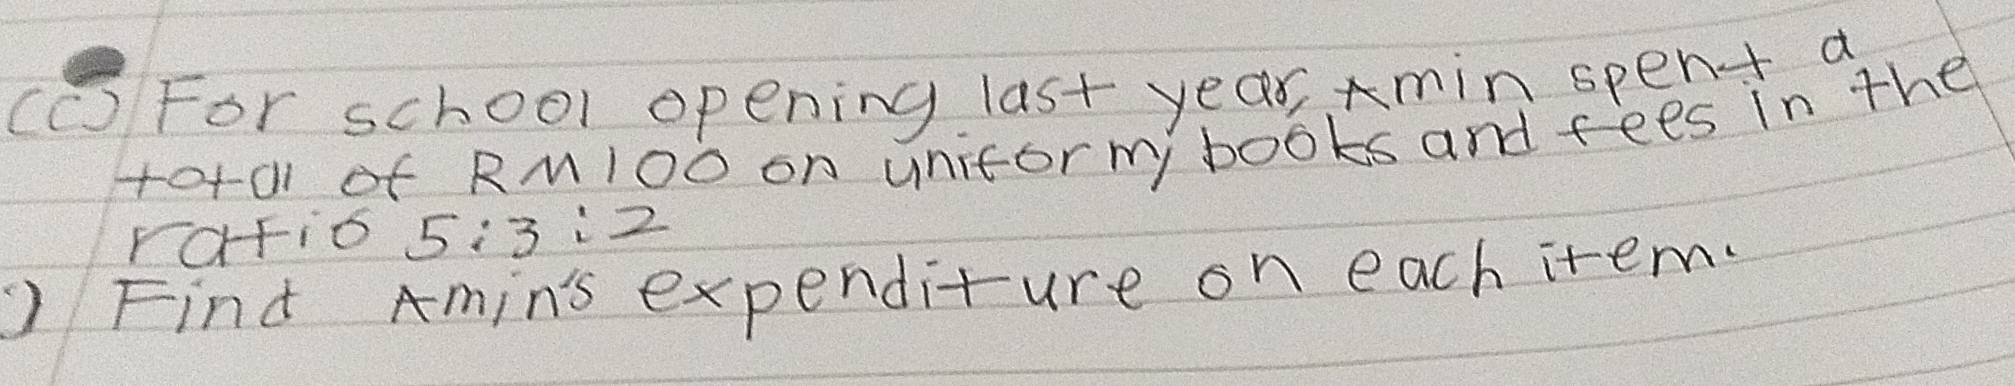 (c) For school opening last year, Amin spent a
total of RM100 on uniform, books and fees in the
ratio 5:3:2
i) Find Amin's expenditure on each item.